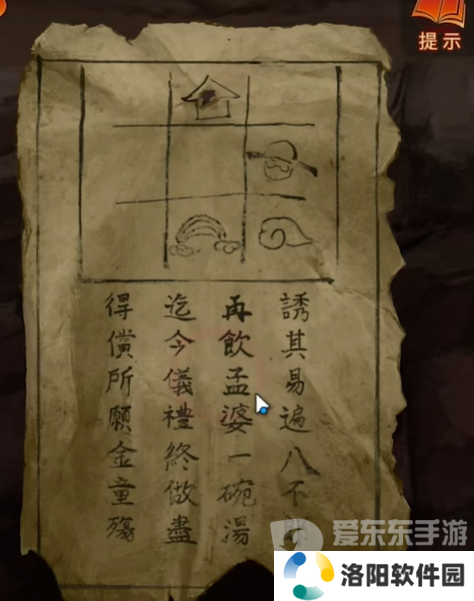 提示
誘其易遍八不
再飲孟婆一碗湯
迄今儀禮終做盡
得償所願金童殤
爱东东手游
洛阳软件园